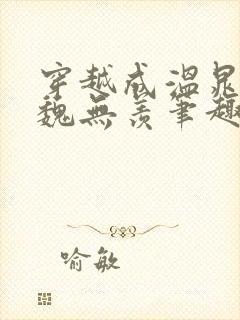 穿越成温晁
魏无羡笔趣
喻敏